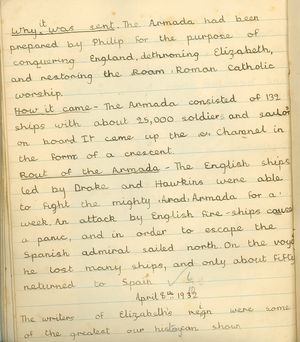 it
Why was sent. The Armada had been
prepared by Philip for the purpose of
conquering England, dethroning Elizabeth,
and restoring the Roam Roman Catholic
worship.
How it came - The Armada consisted of 132
ships with about 25,000 soldiers and sailors
on board It came up the Channel in
the form of a crescent.
Rout of the Armada - The English ships
led by Drake and Hawkins were able
to fight the mighty Armada for a
week. An attack by English fire-ships caused
a panic, and in order to escape the
Spanish admiral sailed north. On the voyage
he lost many ships, and only about fifty
returned to Spain
April 8th 1932
The writers of Elizabeth's reign were some
of the greatest our history can show